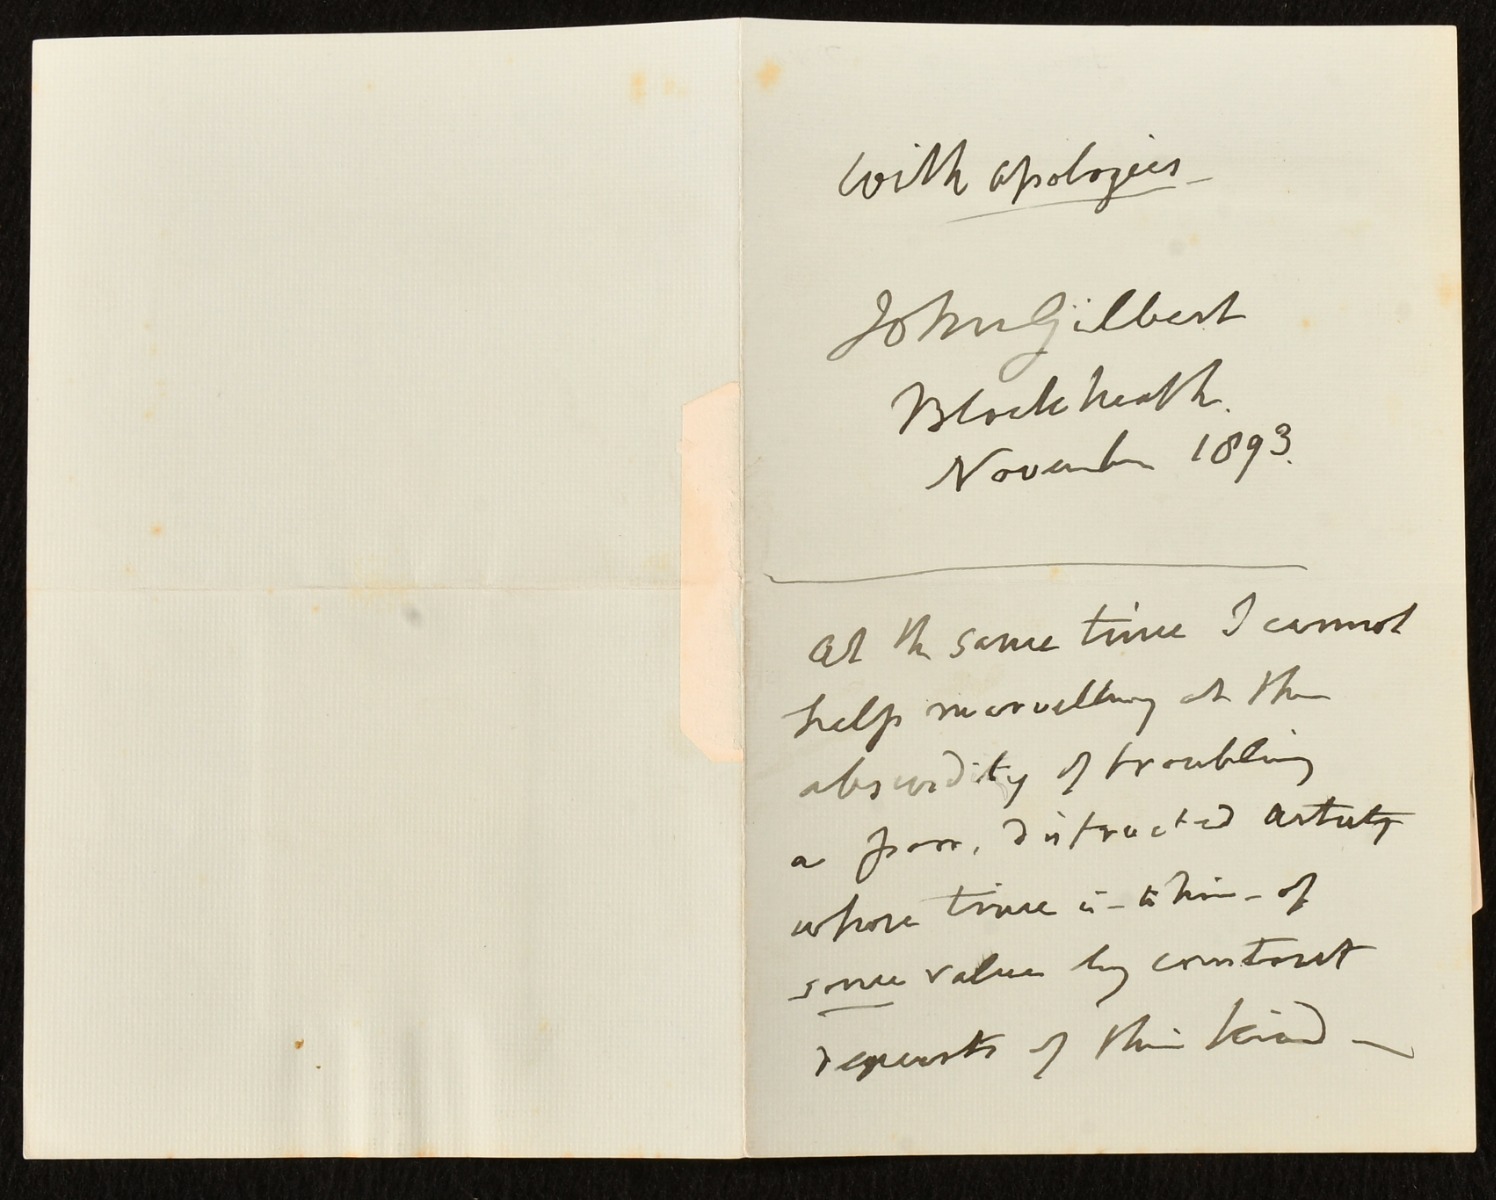 with apologies
John Gilbert
Blackheath.
November 1893.
At the same time I cannot
help marvelling at the
absurdity of troubling
a poor, distracted artist
whose time is - to him - of
some value by constant
requests of this kind